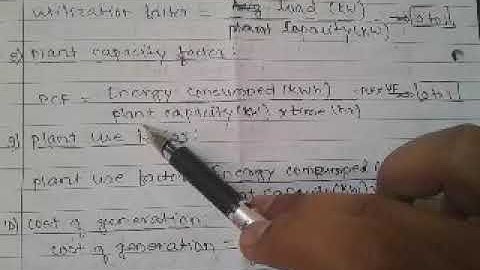 utilization factor = load (kw) [0 to 1]
plant capacity (kw)
plant capacity factor:
PCF = Energy consumped (kwh) [0 to 1]
plant capacity (kw) x time (hr)
g) plant use
plant use factor = Energy consumped
capacity (kw)
cost of generation
cost of generation =